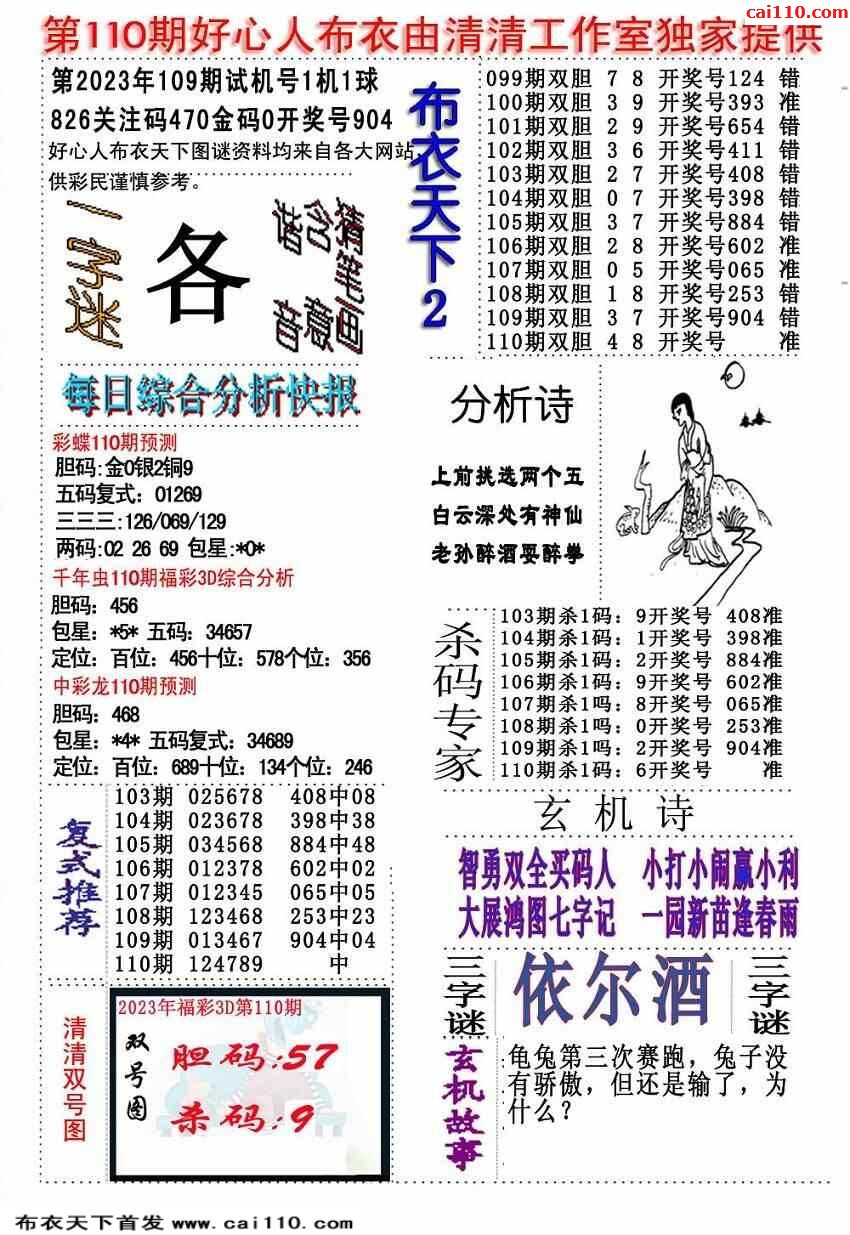 cai110.com
第110期好心人布衣由清清工作室独家提供
第2023年109期试机号1机1球
826关注码470金码0开奖号904
好心人布衣天下图谜资料均来自各大网站,
供彩民谨慎参考。
一字迷
各
猜笔画
含意
谐音
布衣天下2
099期双胆 7 8 开奖号124 错
100期双胆 3 9 开奖号393 准
101期双胆 2 9 开奖号654 错
102期双胆 3 6 开奖号411 错
103期双胆 2 7 开奖号408 错
104期双胆 0 7 开奖号398 错
105期双胆 3 7 开奖号884 错
106期双胆 2 8 开奖号602 准
107期双胆 0 5 开奖号065 准
108期双胆 1 8 开奖号253 错
109期双胆 3 7 开奖号904 错
110期双胆 4 8 开奖号 准
每日综合分析快报
彩蝶110期预测
胆码:金0银2铜9
五码复式：01269
三三三:126/069/129
两码:02 26 69 包星:*0*
千年虫110期福彩3D综合分析
胆码：456
包星：*5* 五码：34657
定位：百位：456十位：578个位：356
中彩龙110期预测
胆码：468
包星：*4* 五码复式：34689
定位：百位：689十位：134个位：246
分析诗
上前挑选两个五
白云深处有神仙
老孙醉酒耍醉拳
杀码专家
103期杀1码：9开奖号 408准
104期杀1码：1开奖号 398准
105期杀1码：2开奖号 884准
106期杀1码：9开奖号 602准
107期杀1吗：8开奖号 065准
108期杀1吗：0开奖号 253准
109期杀1吗：2开奖号 904准
110期杀1码：6开奖号 准
复式推荐
103期 025678 408中08
104期 023678 398中38
105期 034568 884中48
106期 012378 602中02
107期 012345 065中05
108期 123468 253中23
109期 013467 904中04
110期 124789 中
玄机诗
智勇双全买码人 小打小闹赢小利
大展鸿图七字记 一园新苗逢春雨
三字谜
依尔酒
三字谜
清清双号图
2023年福彩3D第110期
双号图
胆码:57
杀码:9
玄机故事
龟兔第三次赛跑，兔子没
有骄傲，但还是输了，为
什么？
布衣天下首发 www.cai110.com